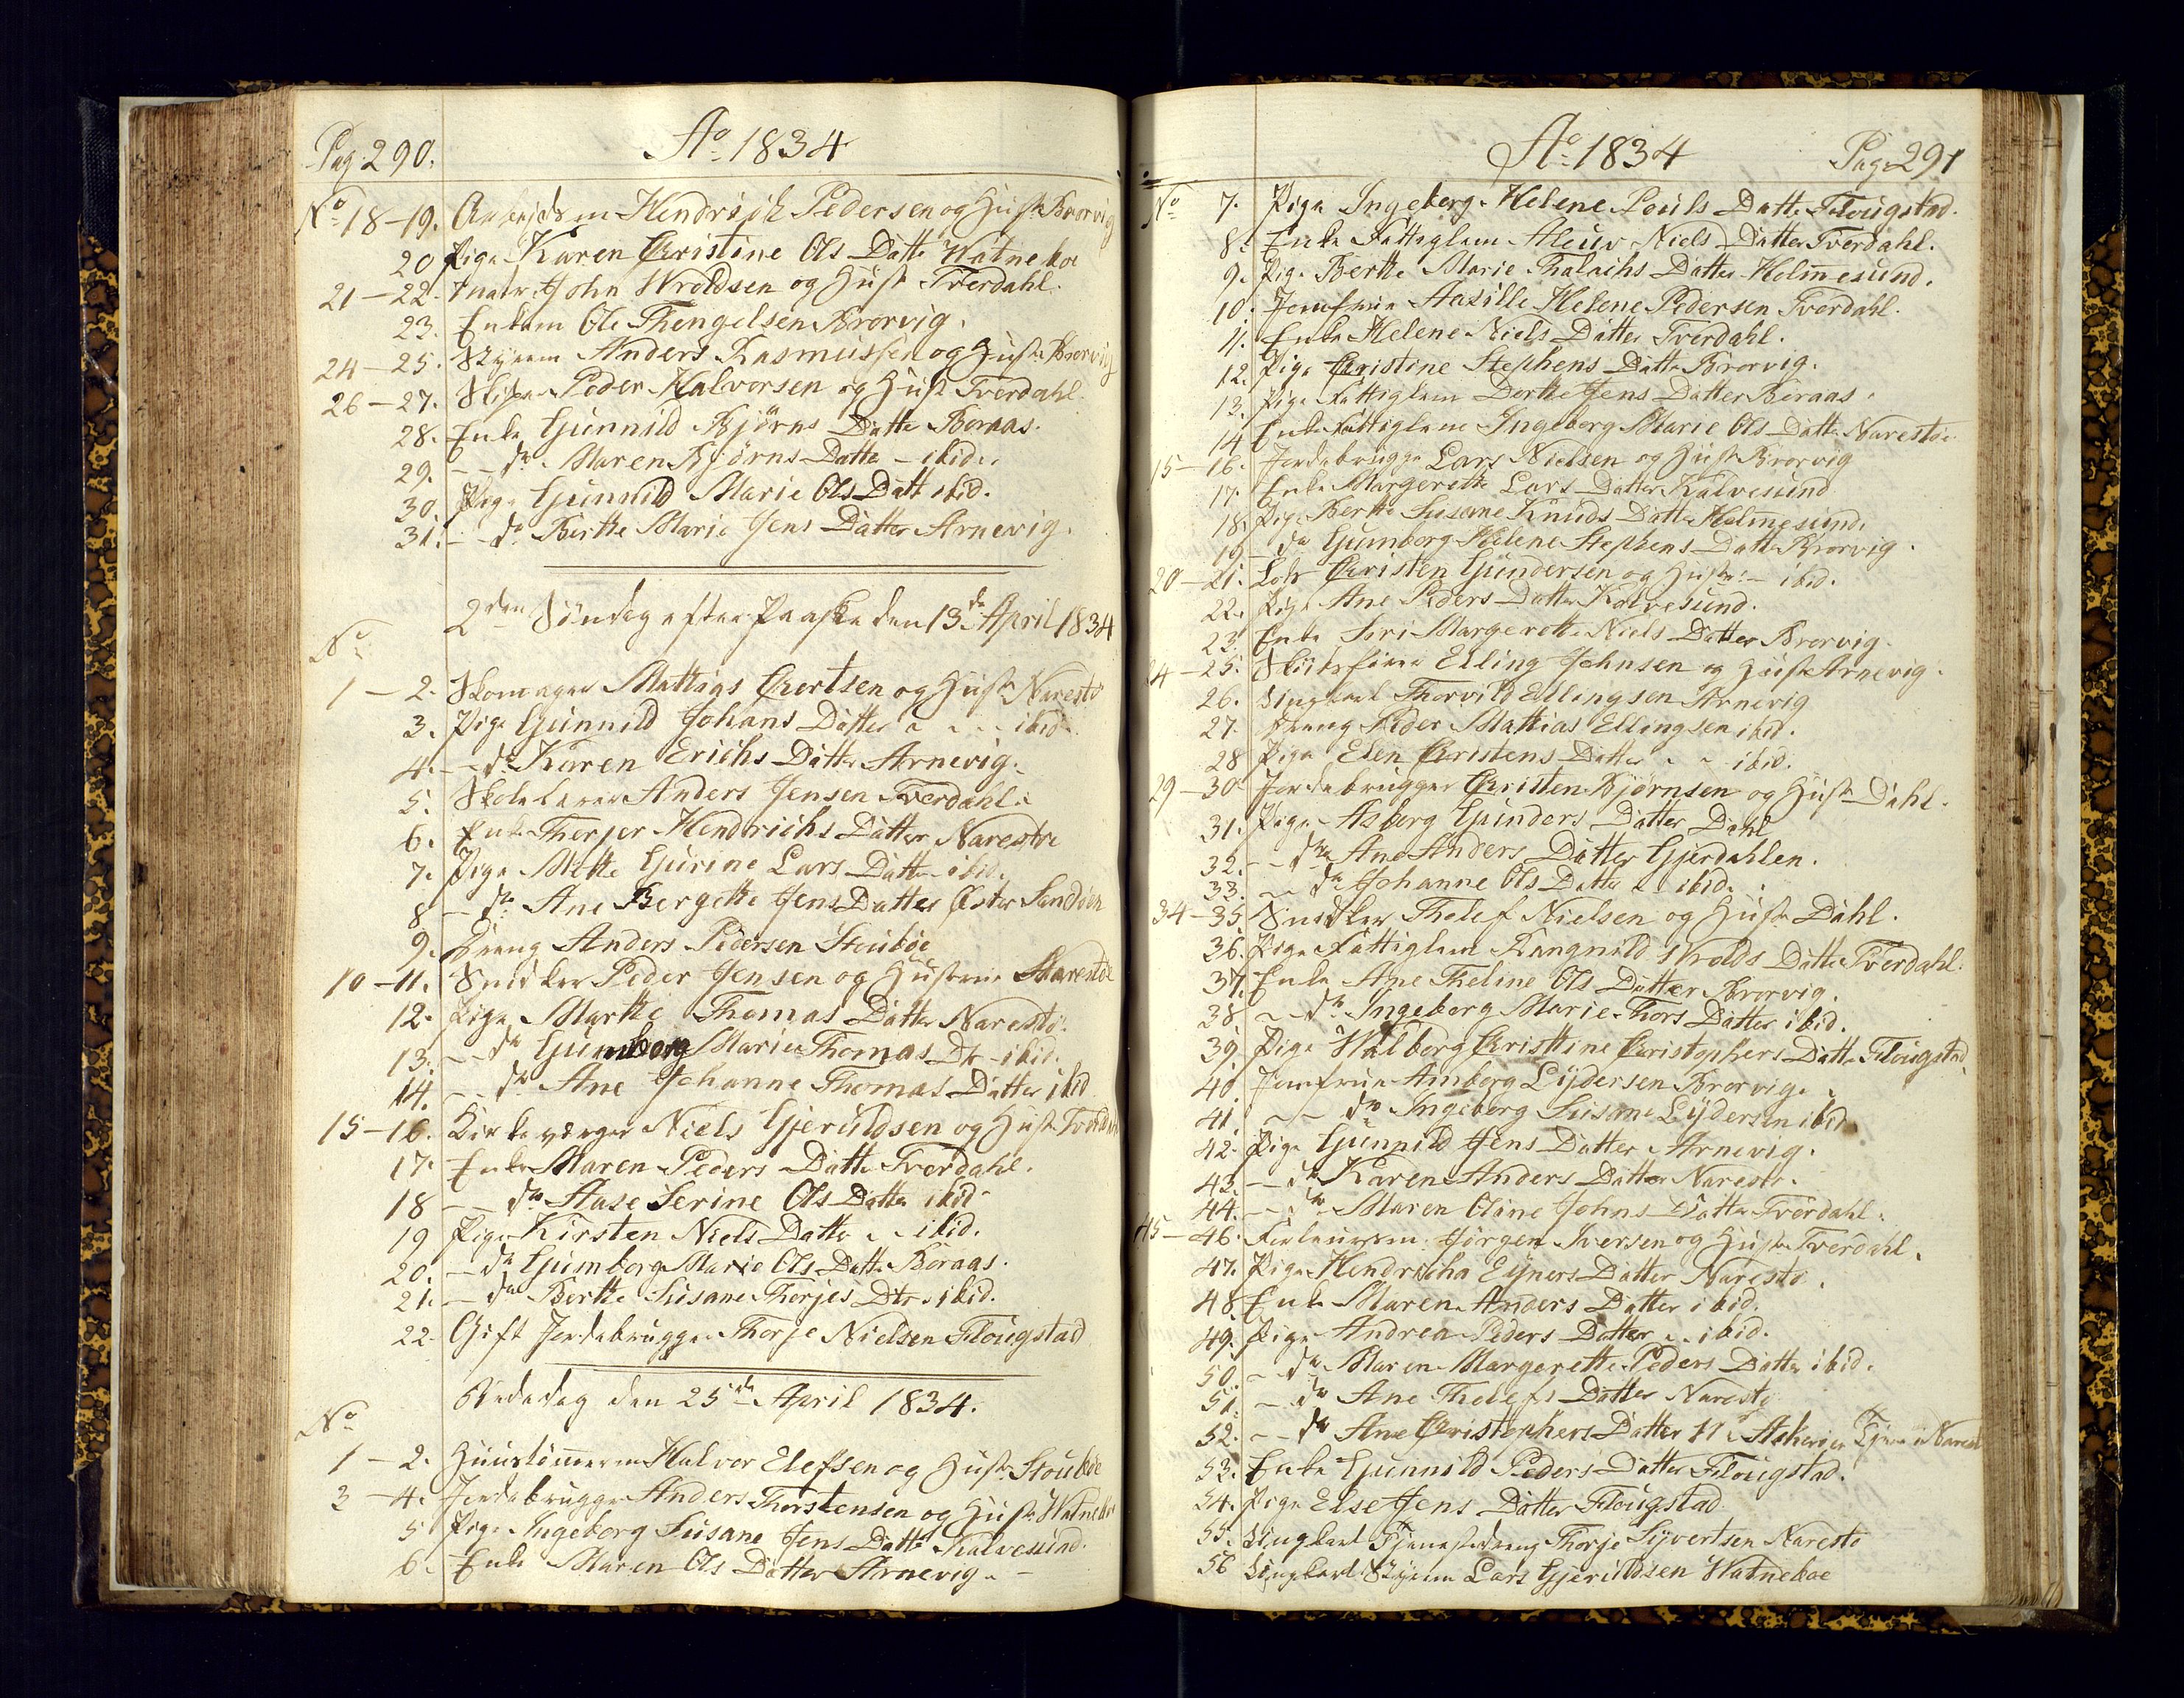 Pag: 290.
Ao 1834
No 18-19. Arbejdsm Hendrich Pedersen og Hust. Brorvig
20 Pige Karen Christine Ols Datte Watneboe
21-22. John Wroldsen og Hust Tverdahl.
23. Enkem Ole Thengelsen Brorvig.
24-25. Anders Rasmussen og Hust. Brorvig
26-27. Skipr Peder Halvorsen og Hust Tverdahl.
28. Enke Gunnild Bjørns Datte Boraas.
29. - - do Maren Bjørns Datte - ibid.
30. Pige Gunnild Marie Ols Datt ibid.
31. - - do Birthe Marie Jens Datter Arnevig.
2den Søndag efter Paaske den 13de April 1834
No
1-2. Skomager Mathias Evertsen og Hust. Narestø
3. Pige Gunnild Johans Datter - - - ibid.
4. - do Karen Erichs Datter Arnevig.
5. Skolelærer Anders Jensen Tverdahl.
6. Enke Therjer Hendrichs Datter Narestøe
7. Pige Mette Gurine Lars Datter ibid.
8 - do Ane Bergethe Jens Datter Øster Sandøen
9. Dreng Anders Pedersen Stoubøe
10-11. Snidker Peder Jensen og Hustrue Narestøe
12. Pige Marthe Thomas Datter Narestø.
13. - - do Gunborg Marie Thomas Dtr - ibid.
14. - - do Ane Johanne Thomas Datter ibid
15-16. Kirkeværger Niels Gjeruldsen og Hust. Tverdahl
17. Enke Maren Peders Datte Tverdahl.
18 - - do Aase Serine Ols Datte ibid
19 Pige Kirsten Niels Datte - - ibid.
20. - do Gumborg Marie Ols Datte Boraas.
21. - do Berthe Susane Thorjes Dtr - ibid.
22. Gift Jordebrugge Thorje Nielsen Flougstad
Bededag den 25de April 1834.
No
1-2. Huustømmerm Halvor Elefsen og Hust. Stoubøe
3-4. Jordebrugger Anders Thorstensen og Hust. Watneboe
5 Pige Ingeborg Susane Jens Datte Kalvesund.
6. Enke Maren Ols Datter Arnevig. -
Ao 1834
Pag: 291
No 7. Pige Ingeborg Helene Pouls Datte Flougstad.
8. Enke Fattiglem Niels Datter Tverdahl.
9. Pige Berthe Marie Datter Helmesund.
10. Jomfrue Aasille Helene Pedersen Tverdahl.
11. Enke Helene Niels Datter Tverdahl.
12. Pige Christine Stephens Datte Brorvig.
13. Pige Fattiglem Dorthe Jens Datter Boraas.
14 Enke Fattiglem Ingeborg Marie Ols Datte Narestøe
15-16. Jordebrugge Lars Nielsen og Hust. Brorvig
17. Enke Margerethe Lars Datter Kalvesund
18. Pige Berthe Susane Knuds Datte Helmesund.
19 - do Gumborg Helene Stephens Datte Brorvig.
20-21. Lods Christen Gundersen og Hustr: - ibid.
22. Pige Ane Peders Datter Kalvesund.
23. Enke Siri Margerethe Niels Datter Brorvig.
24-25. Elling Johnsen og Hust. Arnevig.
26. Ungkarl Thorvild Ellingsen Arnevig
27. Dreng Peder Mathias Ellingsen ibid.
28 Pige Elen Christens Datter - - ibid.
29-30. Jordebrugger Christen Bjørnsen og Hust. Dahl.
31. Pige Asborg Gunders Datter Dahl
32. - - do Ane Anders Datter Gjerdahlen.
33. - - do Johanne Ols Datter - - ibid.
34-35. Snidker Thelef Nielsen og Hust. Dahl.
36. Pige Fattiglem Rangnild Wrolds Datte Tverdahl.
37. Enke Ane Theline Ols Datter Brorvig.
38 - - do Ingeborg Marie Thors Datter ibid.
39. Pige Walborg Christine Christophers Datte Flougstad
40. Jomfrue Amborg Lydersen Brorvig.
41. - - do Ingeborg Susane Lydersen ibid.
42. Pige Gunnild Jens Datter Arnevig.
43. - - do Karen Anders Datter Narestø.
44. - - do Maren Oline Johns Datter Tverdahl.
45-46. Jørgen Iversen og Hust. Tverdahl.
47. Pige Hendricha Eyners Datter Narestø.
48. Enke Maren Anders Datter ibid.
49. Pige Andrea Peders Datter - - ibid.
50. - do Maren Margerethe Peders Datter ibid.
51. - do Ane Thelefs Datter Narestø
52. - - do Ane Christophers Datter Narestø
53. Enke Gunnild Peders Datter Flougstad.
54. Pige Else Jens Datter Flougstad.
55. Ungkarl Tjenestedreng Thorje Syvertsen Narestø
56 Ungkarl Lars Gjeruldsen Watneboe